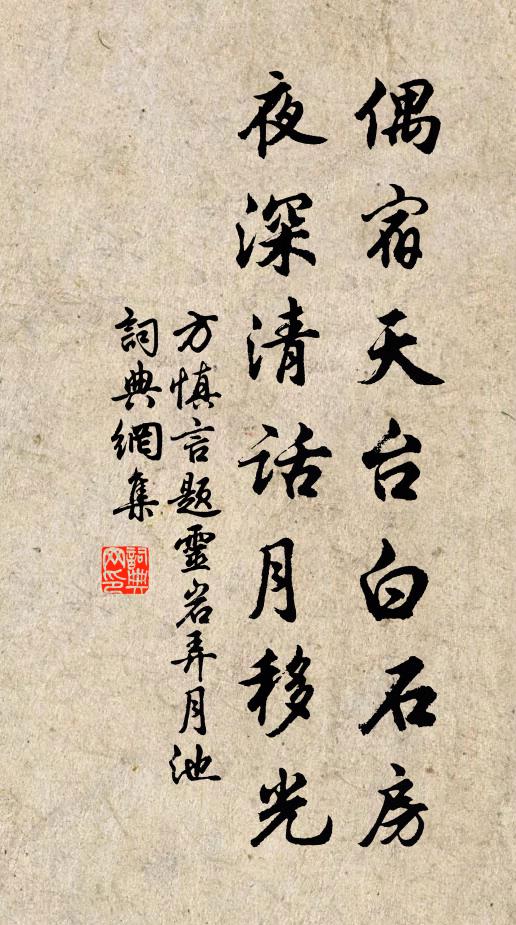 偶宿天台白石房
夜深清话月移光
方慎言题靈岩弄月池
詞典網集
詞典網印